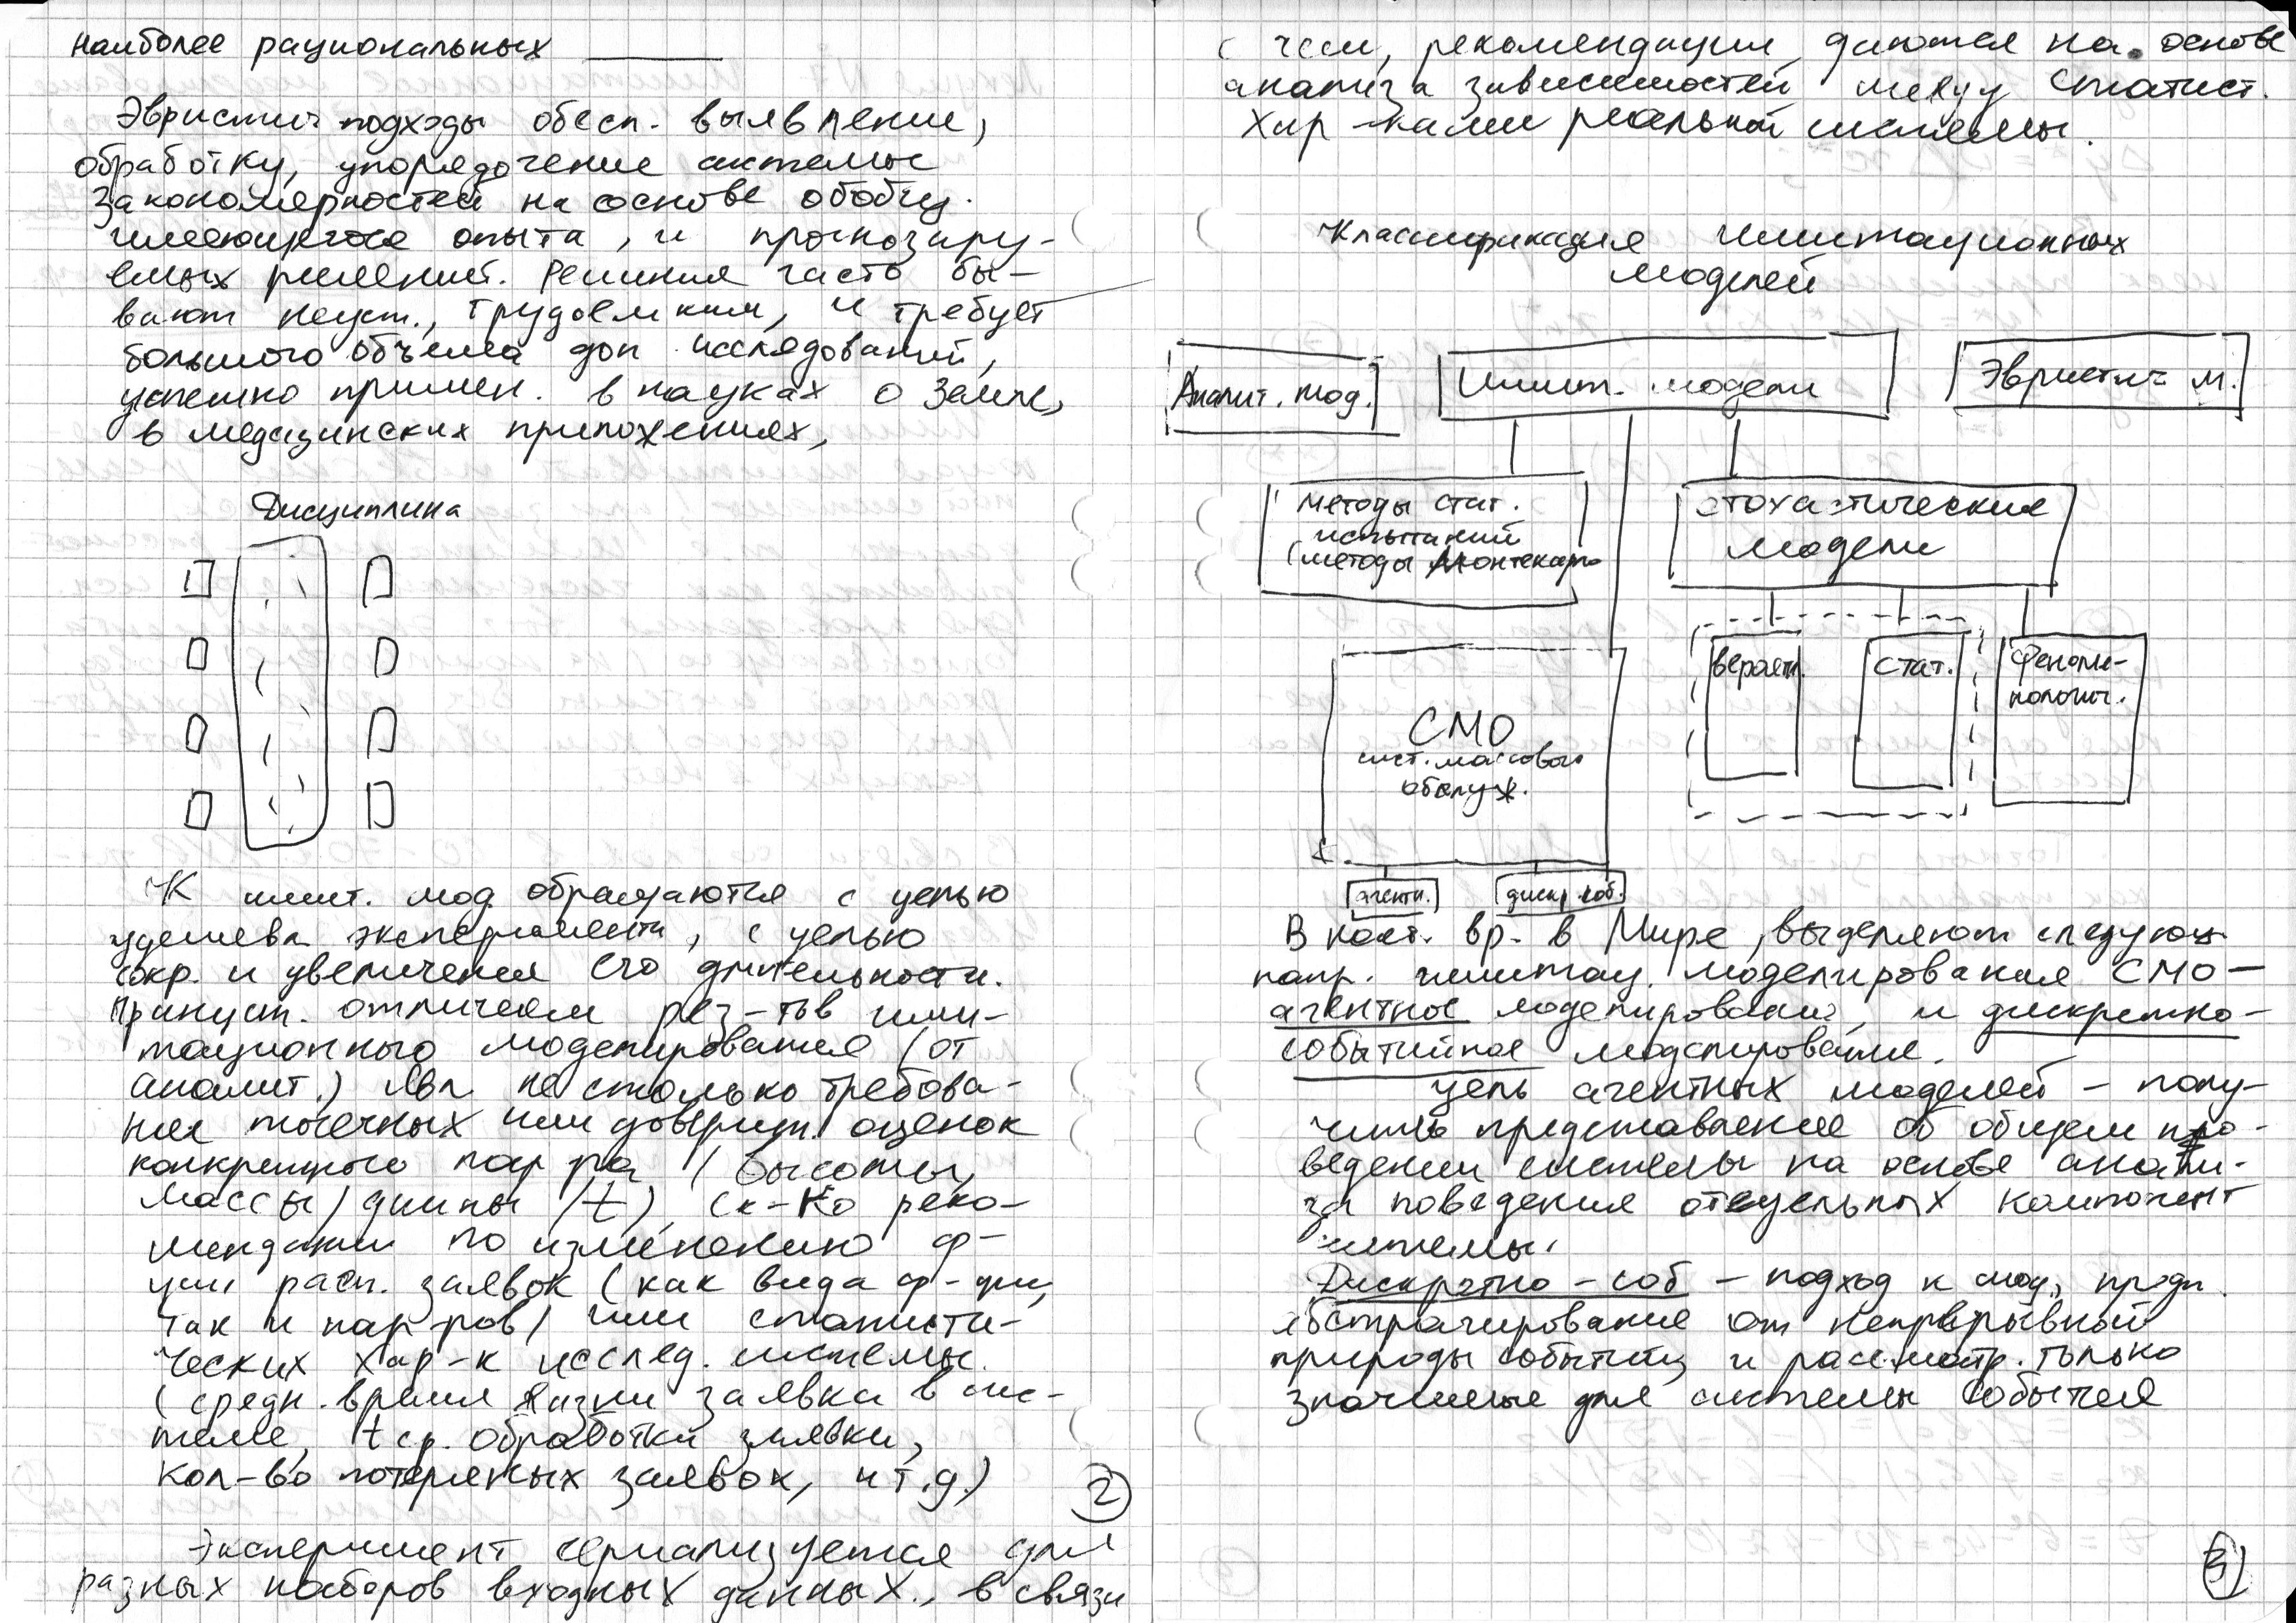 наиболее рациональных
Эвристич подходы обесп. выявление,
обработку, упорядочение системы
закономерностей на основе обобщ.
имеющегося опыта, и прогнозиру-
емых решений. Решения часто бы-
вают неуст., трудоемким, и требует
большого объема доп исследований,
успешно примен. в науках о Земле,
в медицинских приложениях,
Дисциплина
К имит. мод. обращаются с целью
удешевл эксперимента, с целью
сокр. и увеличения его длительности.
отличием рез-тов ими-
тационного моделирования (от
аналит.) явл не столько требова-
ние точечных или доверит. оценок
конкретного пар ра (высоты,
массы/длины /t), ск-ко реко-
мендации по изменению ф-
ции расп. заявок (как вида ф-ции,
так и пар-ров) или статисти-
ческих хар-к исслед. системы.
(средн. время жизни заявки в сис-
теме, t ср. обработки заявки,
кол-во потерянных заявок, и т.д.)
2
Эксперимент сериализуется для
разных наборов входных данных., в связи
с чем, рекомендации даются на основе
анализа зависимостей между статист.
хар-ками реальной системы.
Классификация имитационных
моделей
Аналит. мод.
Имит. модели
Эвристич м.
методы стат.
испытаний
(методы Монтекарло
стохастические
модели
вероятн.
стат.
Феноме-
нологич.
СМО
сист. массовых
обслуж.
агентн.
дискр. соб.
В наст. вр. в Мире, выделяют следующ
напр. имитац. моделирования СМО –
агентное моделирование, и дискретно-
событийное моделирование.
цель агентных моделей – полу-
чить представление об общем по-
ведении системы на основе анали-
за поведения отдельных компонент
системы.
Дискретно – соб – подход к мод., предл.
абстрагирование от непрерывной
природы событий и рассмотр. только
значимые для системы события
3